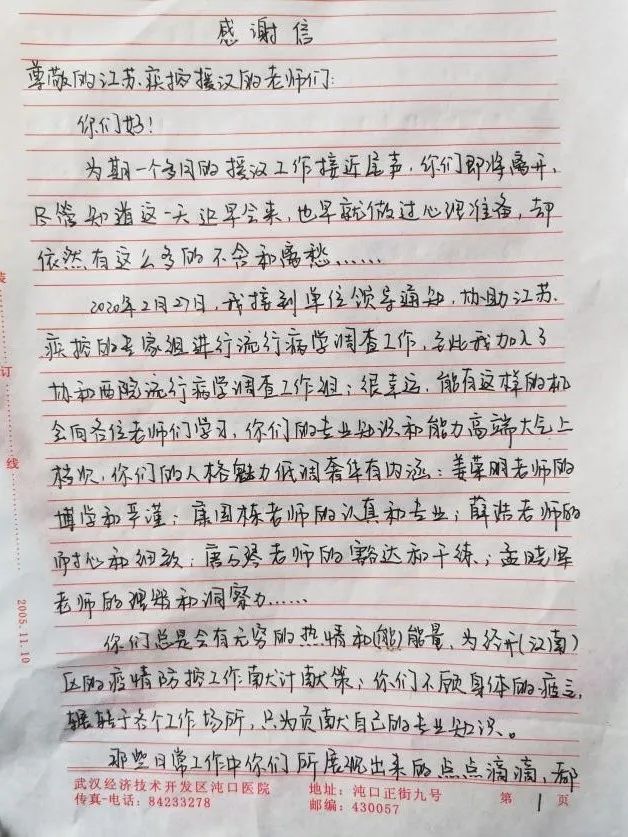 感谢信
尊敬的江苏疾控援汉的老师们:
你们好!
为期一个多月的援汉工作接近尾声,你们即将离开,
尽管知道这一天迟早会来,也早就做过心理准备,却
依然有这么多的不舍和离愁……
2020年2月27日,我接到单位领导通知,协助江苏
疾控的专家组进行流行病学调查工作,至此我加入了
协和西院流行病学调查工作组;很幸运,能有这样的机
会向各位老师们学习,你们的专业知识和能力高端大气上
档次,你们的人格魅力低调奢华有内涵:姜荣明老师的
博学和严谨;康国栋老师的认真和专业;薛浩老师的
耐心和细致;唐万琴老师的豁达和干练;孟晓军
老师的理智和洞察力……
你们总是会有无穷的热情和(能)能量,为经开(汉南)
区的疫情防控工作献计献策;你们不顾身体的疲乏,
辗转于各个工作场所,只为贡献自己的专业知识。
那些日常工作中你们所展现出来的点点滴滴,都
武汉经济技术开发区沌口医院 地址:沌口正街九号
传真-电话:84233278 邮编:430057 第 1 页
装
订
线
2005.11.10